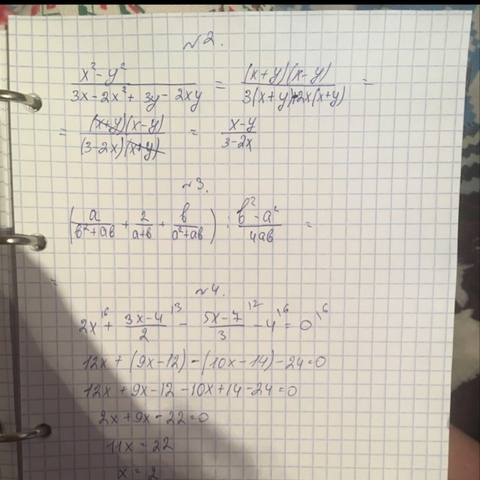 №2.
x²-y² / 3x-2x²+3y-2xy = (x+y)(x-y) / 3(x+y)-2x(x+y) =
= (x+y)(x-y) / (3-2x)(x+y) = x-y / 3-2x
№3.
(a / b²+ab + 2 / a+b + b / a²+ab) : b²-a² / 4ab =
=
№4.
2x\6 + 3x-4 / 2 \3 - 5x-7 / 3 \2 - 4\6 = 0\6
12x + (9x-12) - (10x-14) - 24=0
12x + 9x-12 -10x+14-24=0
2x+9x-22=0
11x = 22
x = 2